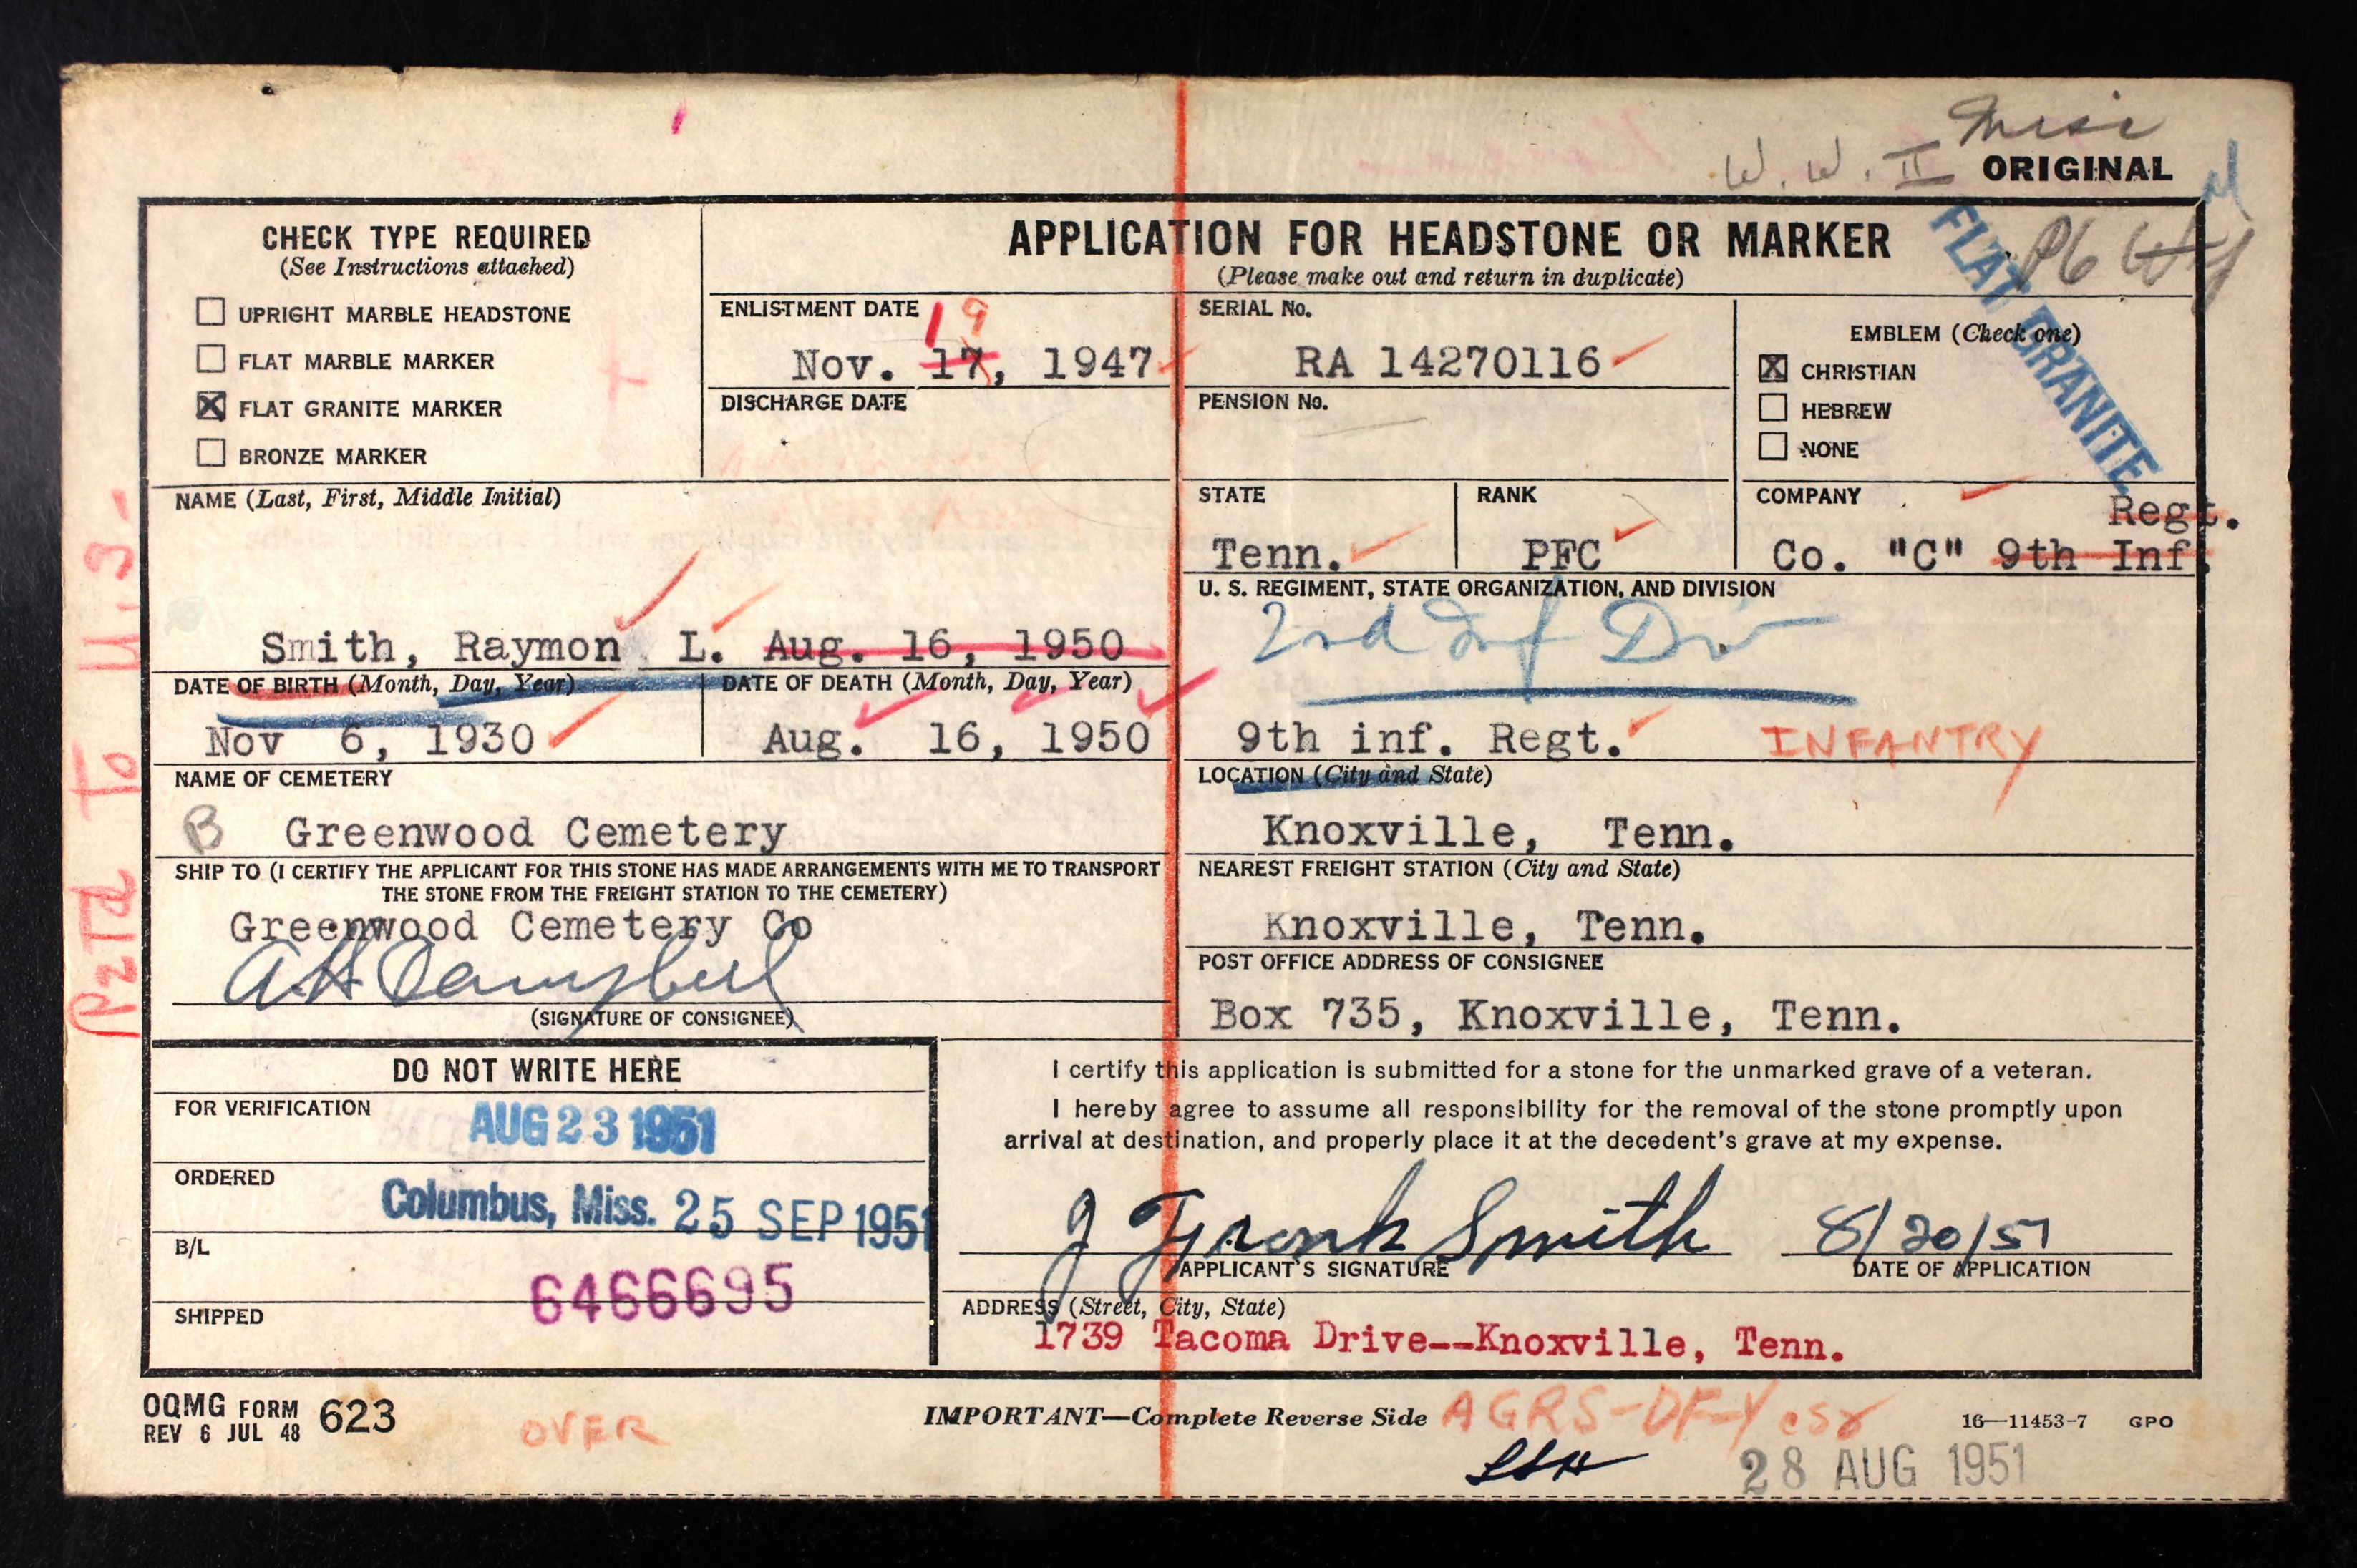 Misc
W. W. II ORIGINAL
CHECK TYPE REQUIRED
(See Instructions attached)
UPRIGHT MARBLE HEADSTONE
FLAT MARBLE MARKER
FLAT GRANITE MARKER
BRONZE MARKER
APPLICATION FOR HEADSTONE OR MARKER
(Please make out and return in duplicate)
FLAT GRANITE
ENLISTMENT DATE
19
Nov. 17, 1947
DISCHARGE DATE
SERIAL No.
RA 14270116
PENSION No.
EMBLEM (Check one)
CHRISTIAN
HEBREW
NONE
NAME (Last, First, Middle Initial)
Smith, Raymon L. Aug. 16, 1950
STATE
Tenn.
RANK
PFC
COMPANY
Regt.
Co. "C" 9th Inf.
U. S. REGIMENT, STATE ORGANIZATION, AND DIVISION
2nd Inf Div
9th inf. Regt. INFANTRY
DATE OF BIRTH (Month, Day, Year)
Nov 6, 1930
DATE OF DEATH (Month, Day, Year)
Aug. 16, 1950
NAME OF CEMETERY
B Greenwood Cemetery
LOCATION (City and State)
Knoxville, Tenn.
SHIP TO (I CERTIFY THE APPLICANT FOR THIS STONE HAS MADE ARRANGEMENTS WITH ME TO TRANSPORT
THE STONE FROM THE FREIGHT STATION TO THE CEMETERY)
Greenwood Cemetery Co
A H Campbell
(SIGNATURE OF CONSIGNEE)
NEAREST FREIGHT STATION (City and State)
Knoxville, Tenn.
POST OFFICE ADDRESS OF CONSIGNEE
Box 735, Knoxville, Tenn.
DO NOT WRITE HERE
FOR VERIFICATION
AUG 23 1951
ORDERED
Columbus, Miss. 25 SEP 1951
B/L
6466695
SHIPPED
I certify this application is submitted for a stone for the unmarked grave of a veteran.
I hereby agree to assume all responsibility for the removal of the stone promptly upon
arrival at destination, and properly place it at the decedent's grave at my expense.
J Frank Smith 8/20/51
APPLICANT'S SIGNATURE DATE OF APPLICATION
ADDRESS (Street, City, State)
1739 Tacoma Drive--Knoxville, Tenn.
OQMG FORM 623
REV 6 JUL 48
OVER
IMPORTANT—Complete Reverse Side
16—11453-7 GPO
28 AUG 1951